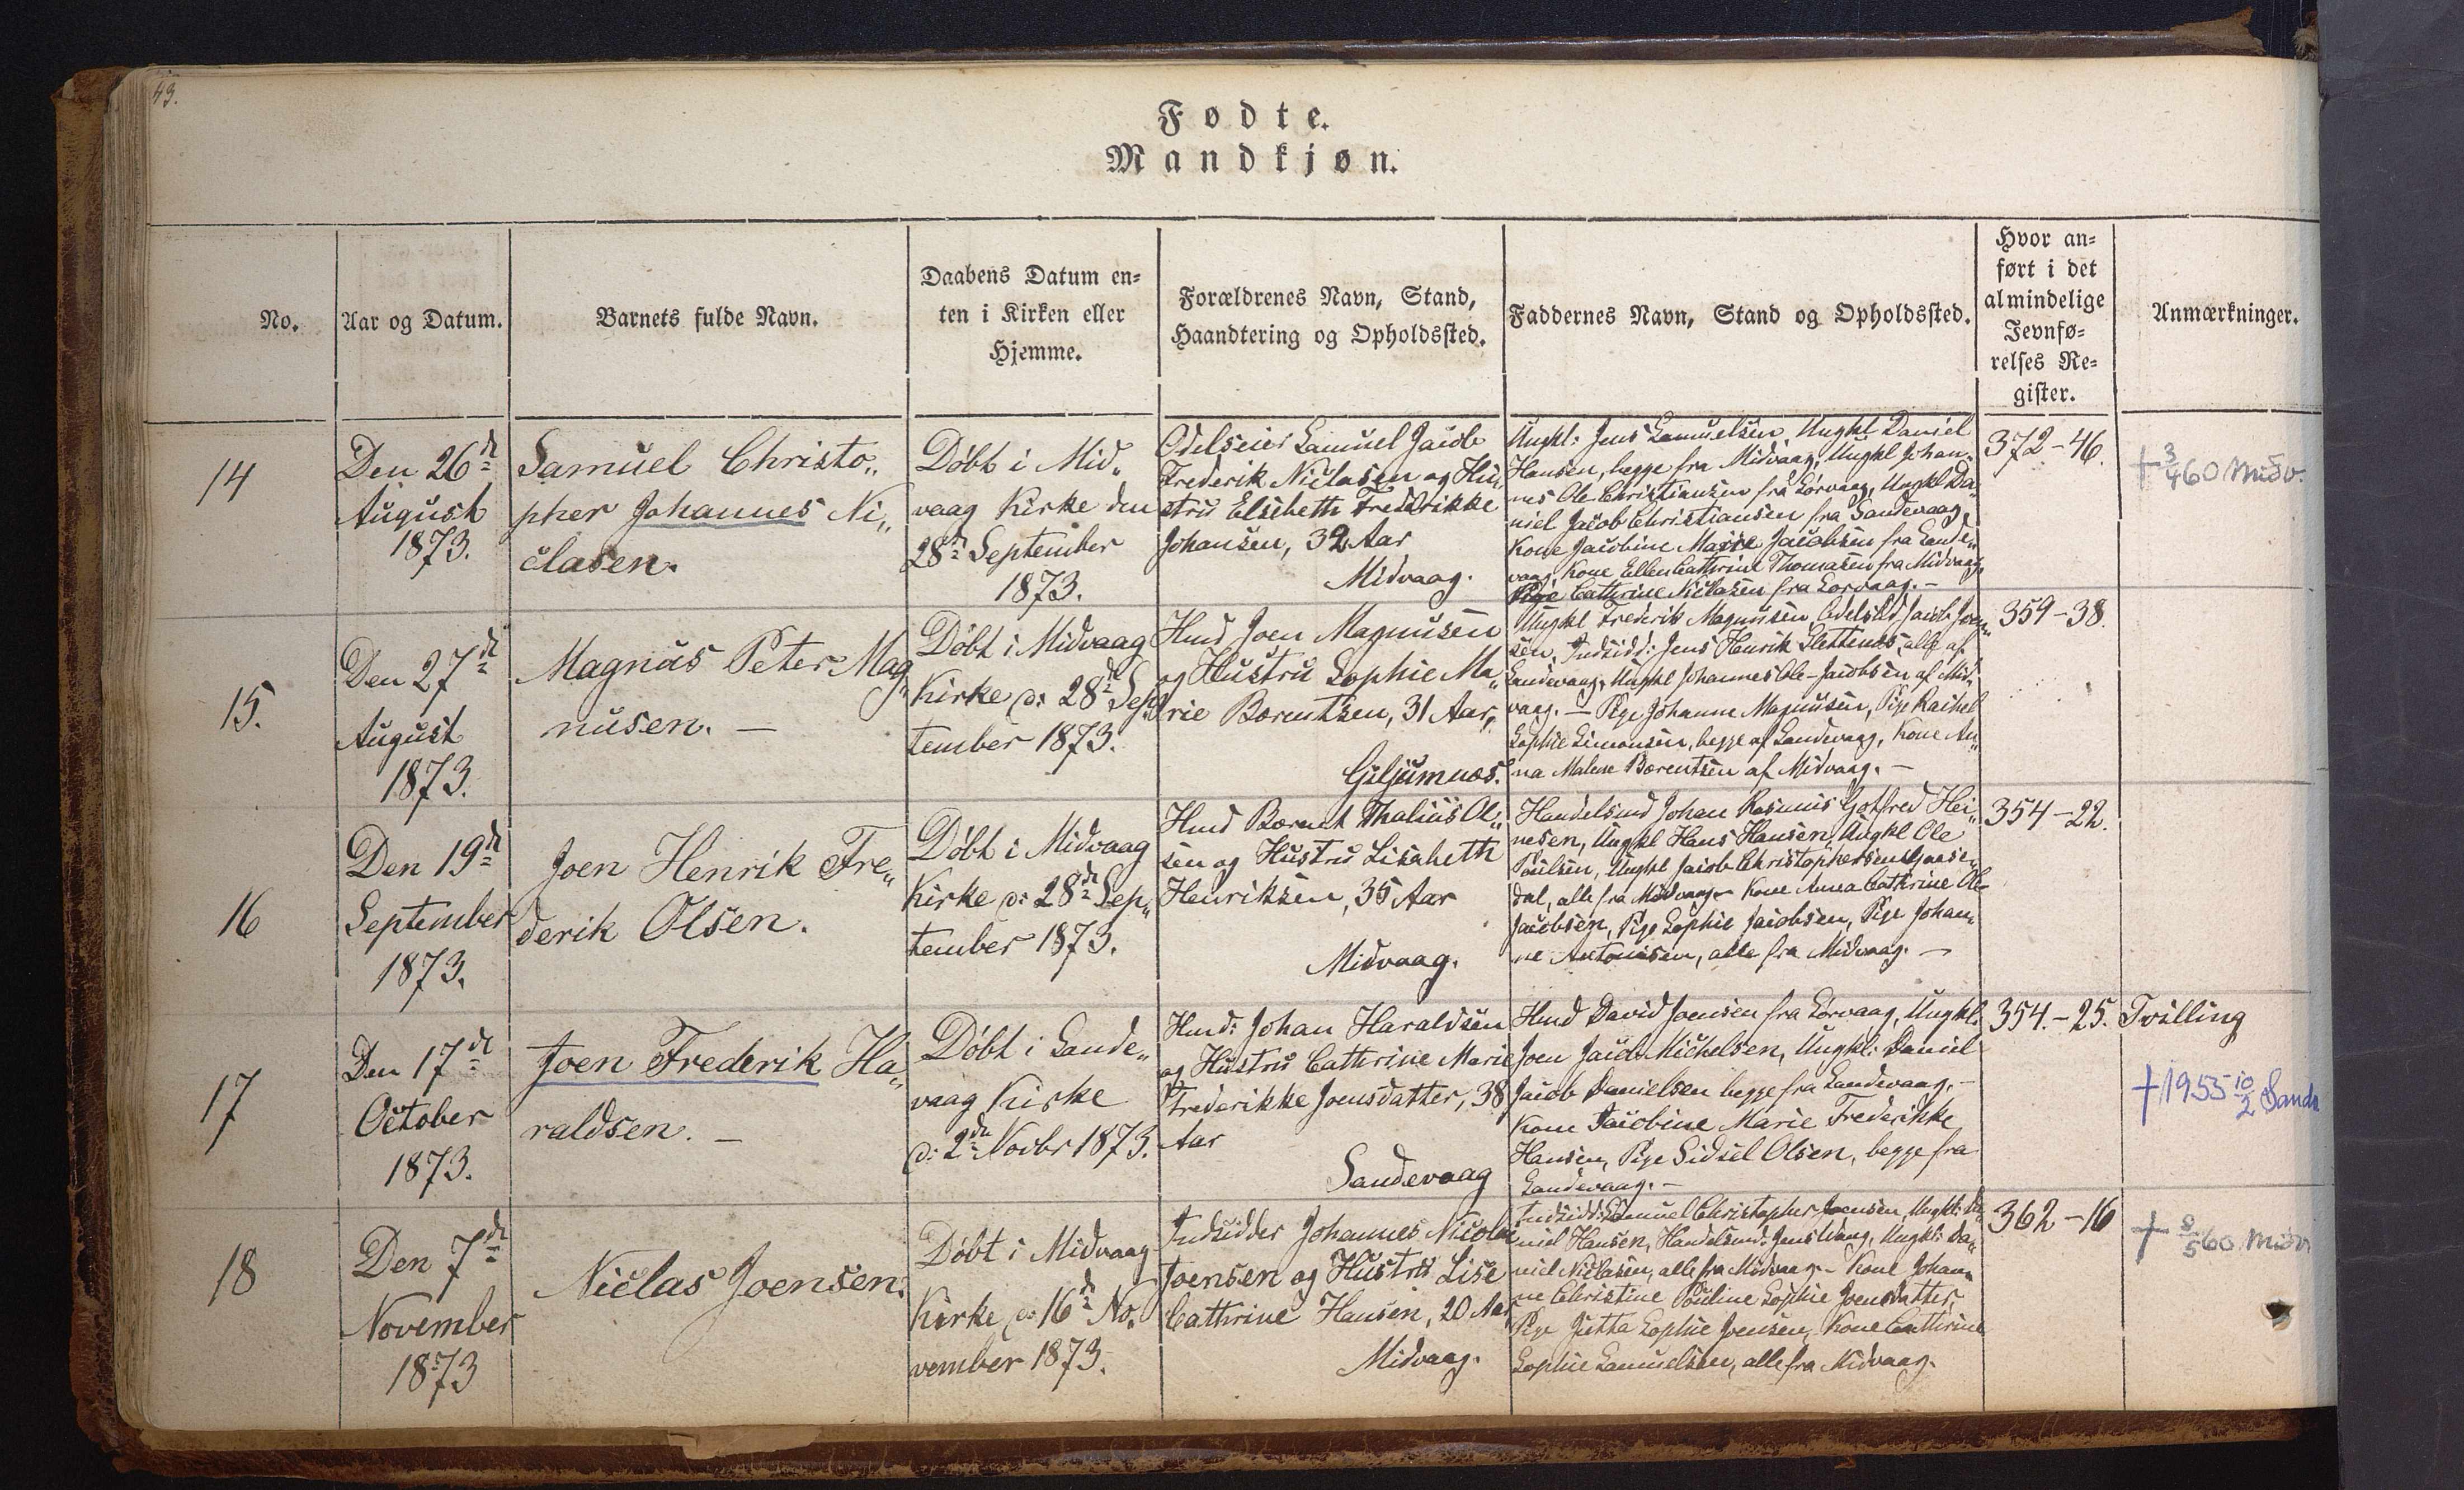 43.
Fødte.
Mandkjøn.
No.
Aar og Datum.
Barnets fulde Navn.
Daabens Datum en=
ten i Kirken eller
Hjemme.
Forældrenes Navn, Stand,
Haandtering og Opholdssted.
Faddernes Navn, Stand og Opholdssted.
Hvor an=
ført i det
almindelige
Jevnfø=
relses Re=
gister.
Anmærkninger.
14
Den 26d
August
1873.
Samuel Christo„
pher Johannes Ni„
clasen.
Døbt i Mid„
vaag Kirke den
28d September
1873.
Odelseier Samuel Jacob
Frederik Niclasen og Hu„
stru Elsebeth Frederikke
Johansen, 32 Aar
Midvaag.
Ungkl: Jens Samuelsen, Ungkl Daniel
Hansen, begge fra Midvaag, Ungkl Johan„
nes Ole Christiansen fra Sørvaag, Ungkl Da„
niel Jacob Christiansen fra Sandevaag,
Kone Jacobine Marie Jacobsen fra Sande„
vaag, Kone Ellen Cathrine Thomasen fra Midvaag,
Pige Cathrine Niclasen fra Sørvaag. –
372-46.
† 3/4 60 Midv.
15.
Den 27d
August
1873.
Magnus Peter Mag„
nusen. –
Døbt i Midvaag
Kirke d: 28d Sep„
tember 1873.
Hmd Joen Magnusen
og Hustru Sophie Ma„
rie Bærentsen, 31 Aar,
Giljumnæs.
Ungkl Frederik Magnusen, Jacob Joen„
sen, Indsidd: Jens Henrik Slettenæs, alle af
Sandevaag, Ungkl Johannes Ole Jacobsen af Mid„
vaag. – Pige Johanne Magnusen, Pige Rachel
Sophie Simonsen, begge af Sandevaag, Kone An„
na Malene Bærentsen af Midvaag. –
359-38.
16
Den 19d
September
1873.
Joen Henrik Fre„
derik Olsen.
Døbt i Midvaag
Kirke d: 28d Sep„
tember 1873.
Hmd Bærent Thalius Ol„
sen og Hustru Lisabeth
Henriksen, 35 Aar
Midvaag.
Handelsmd Johan Rasmus Gotfred Hei„
nesen, Ungkl Hans Hansen, Ungkl Ole
Poulsen, Ungkl Jacob Christophersen Gaase„
dal, alle fra Midvaag – Kone Anna Cathrine Ole
Jacobsen, Pige Sophie Jacobsen, Pige Johan„
ne Antonisen, alle fra Midvaag. –
354-22.
17
Den 17d
October
1873.
Joen Frederik Ha„
raldsen. –
Døbt i Sande„
vaag Kirke
d: 2den Novbr 1873.
Hmd: Johan Haraldsen
og Hustru Cathrine Marie
Frederikke Joensdatter, 38
Aar
Sandevaag
Hmd David Joensen fra Sørvaag, Ungkl:
Joen Jacob Michelsen, Ungkl: Daniel
Jacob Danielsen begge fra Sandevaag. –
Kone Jacobine Marie Frederikke
Hansen, Pige Sidsel Olsen, begge fra
Sandevaag. –
354.-25.
Tvilling
† 1955 10/2 Sandv
18
Den 7d
November
1873
Niclas Joensen.
Døbt i Midvaag
Kirke d: 16d No„
vember 1873.
Indsidder Johannes Nicolai
Joensen og Hustru Lise
Cathrine Hansen, 20 Aar,
Midvaag.
Indsidd: Samuel Christopher Joensen, Ungkl: Da„
niel Hansen, Handelsmd: Jens Wang, Ungkl: Da„
niel Niclasen, alle fra Midvaag. – Kone Johan„
ne Christine Pouline Sophie Joensdatter,
Pige Jutta Sophie Joensen, Kone Cathrine
Sophie Samuelsen, alle fra Midvaag.
362-16
† 8/5 60 Midv